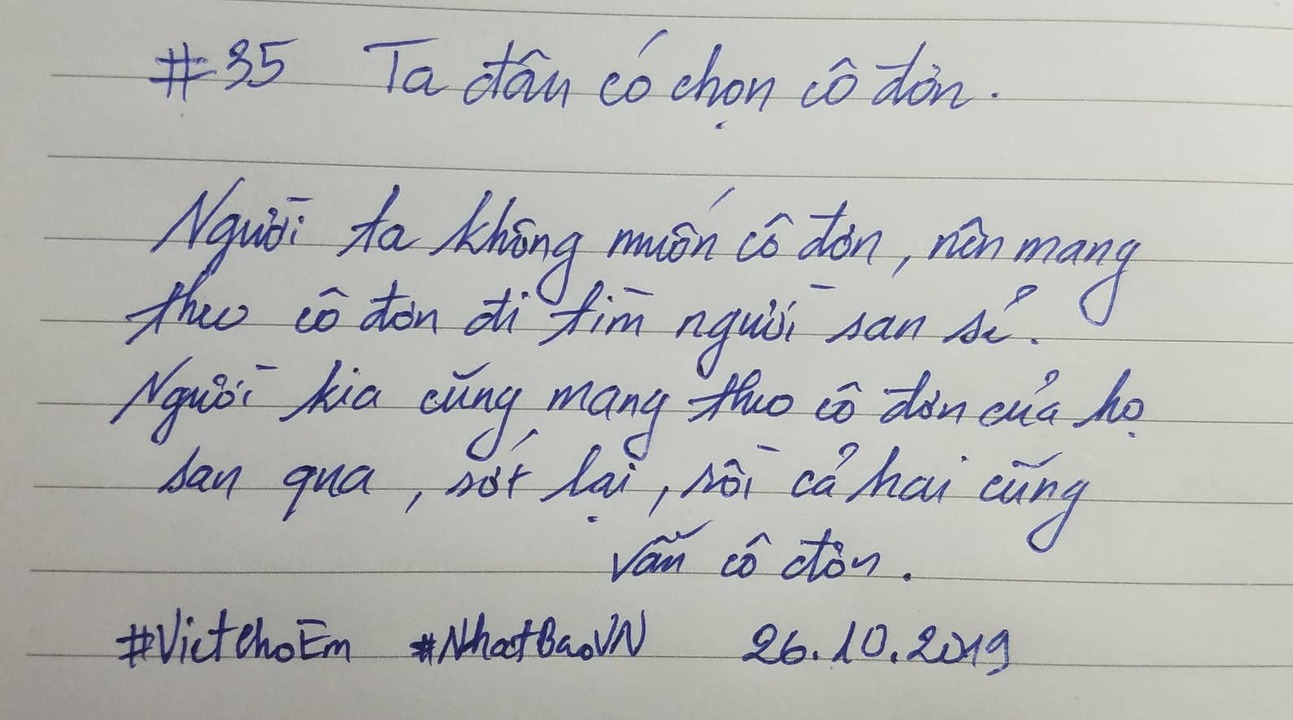 #35 Ta đâu có chọn cô đơn.
Người ta không muốn cô đơn, nên mang
theo cô đơn đi tìm người san sẻ.
Người kia cũng mang theo cô đơn của họ
san qua, sớt lại, rồi cả hai cũng
vẫn cô đơn.
#VietchoEm #NhatBaoVN 26.10.2019